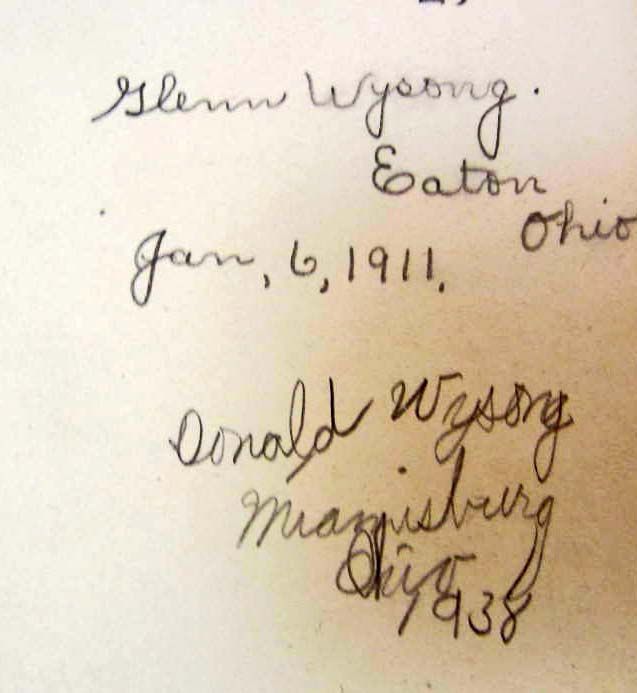 Glenn Wysong.
Eaton
Ohio
Jan, 6, 1911.
Donald Wysong
Miamisburg
Ohio
1938